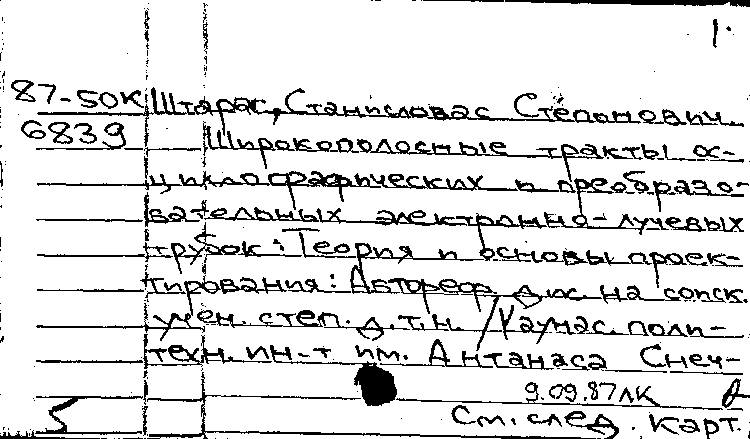 1.
87-50К Штарас, Станисловас Степонович.
6839 Широкополосные тракты ос-
циллографических и преобразо-
вательных электронно-лучевых
трубок: Теория и основы проек-
тирования: Автореф. дис. на соиск.
учен. степ. д.т.н. / Каунас. поли-
техн. ин-т им. Антанаса Снеч-
9.09.87ЛК
5 См. след. карт.